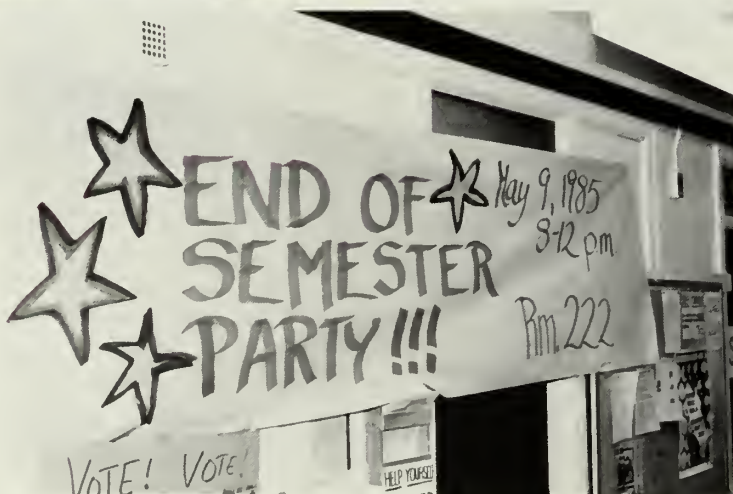 END OF
SEMESTER
PARTY!!!
May 9, 1985
8-12 p.m.
Rm. 222
VOTE! VOTE!
HELP YOURSELF